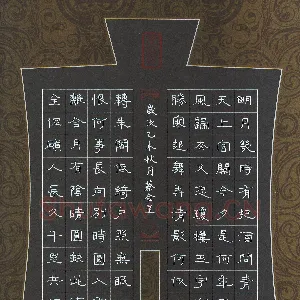 明月幾時有把酒問青
天上宮闕今夕是何年
風歸去又恐瓊樓玉宇
勝寒起舞弄清影何似
歲次乙未秋月
轉朱閣低綺戶照無眠
恨何事長向別時圓人
離合月有陰晴圓缺此
全但願人長久千里共